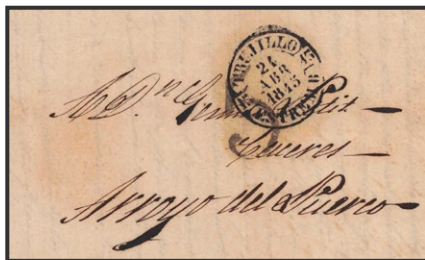 TRUJILLO
24
ABR
1845
ESTREM.
A D.ⁿ
Caceres
Arroyo del Puerco